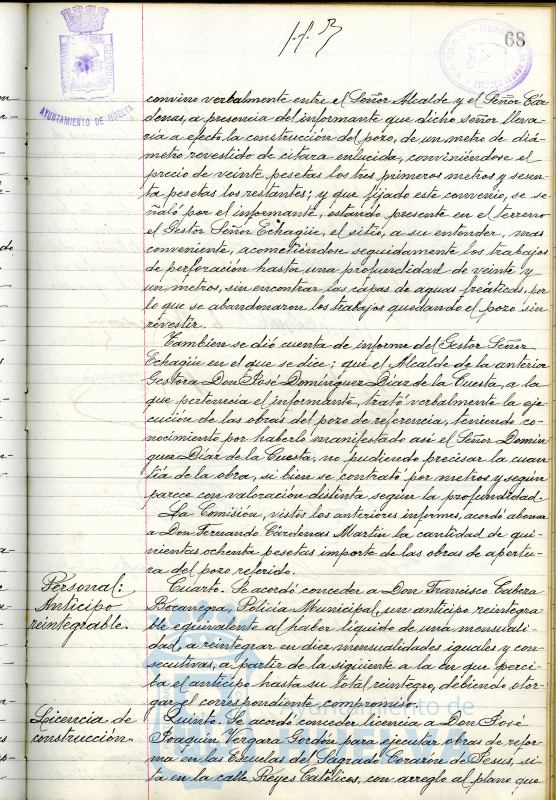 68
AYUNTAMIENTO DE HUELVA
convino verbalmente entre el Señor Alcalde y el Señor Cár-
denas, a presencia del informante que dicho señor lleva-
ria a efecto la construcción del pozo, de un metro de diá-
metro revestido de citara enlucida, conviniéndose el
precio de veinte pesetas los tres primeros metros y sesen-
ta pesetas los restantes; y que fijado este convenio, se se-
ñaló por el informante, estando presente en el terreno
el Gestor Señor Echagüe, el sitio, a su entender, mas
conveniente, acometiéndose seguidamente los trabajos
de perforación hasta una profundidad de veinte y
un metros, sin encontrar las capas de aguas freáticas, por
lo que se abandonaron los trabajos quedando el pozo sin
revestir.
Tambien se dió cuenta de informe del Gestor Señor
Echagüe en el que se dice; que el Alcalde de la anterior
Gestora Don José Domínguez Díaz de la Cuesta, a la
que pertenecía el informante, trató verbalmente la eje-
cución de las obras del pozo de referencia, teniendo co-
nocimiento por haberlo manifestado asi el Señor Domín-
guez Díaz de la Cuesta, no pudiendo precisar la cuan-
tía de la obra, si bien se contrató por metros y según
parece con valoración distinta según la profundidad.
La Comisión, vistos los anteriores informes, acordó abonar
a Don Fernando Cárdenas Martin la cantidad de qui-
nientas ochenta pesetas importe de las obras de apertu-
ra del pozo referido.
Personal:
Anticipo
reintegrable.
Cuarto. Se acordó conceder a Don Francisco Cabeza
Bocanegra, Policía Municipal, un anticipo reintegra-
ble equivalente al haber líquido de una mensuali-
dad, a reintegrar en diez mensualidades iguales y con-
secutivas, a partir de la siguiente a la en que perci-
ba el anticipo hasta su total reintegro, debiendo otor-
gar el correspondiente compromiso.
Licencia de
construcción.
Quinto. Se acordó conceder licencia a Don José
Joaquín Vergara Gordón para ejecutar obras de refor-
ma en las Escuelas del Sagrado Corazón de Jesus, si-
ta en la calle Reyes Católicos, con arreglo al plano que
Ayuntamiento de
HUELVA